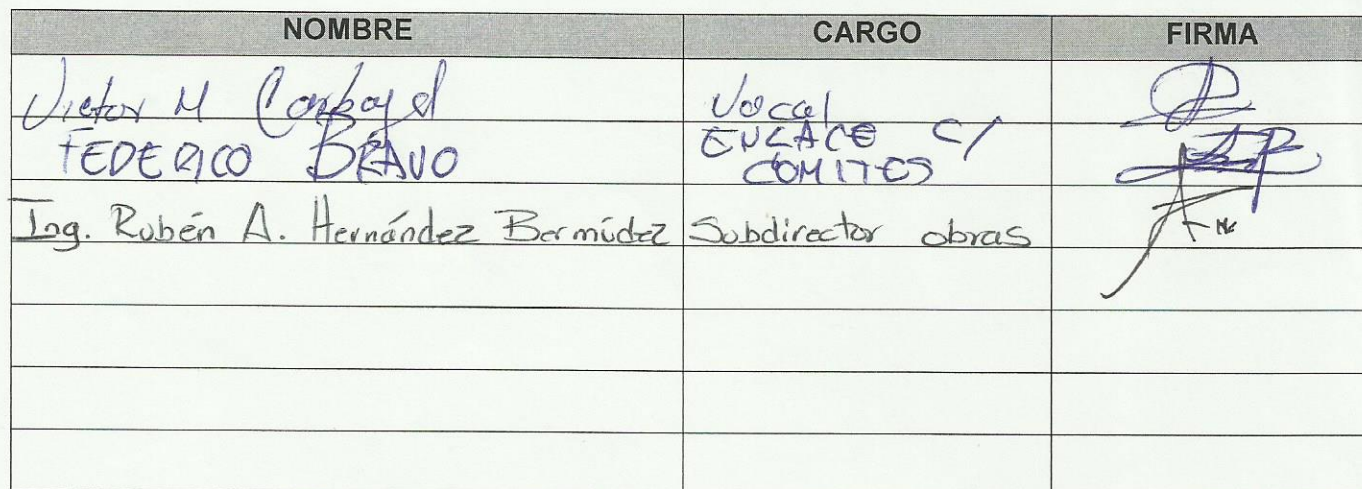 NOMBRE CARGO FIRMA
Victor M Carbajal Vocal
FEDERICO BRAVO ENLACE C/
COMITES
Ing. Rubén A. Hernández Bermúdez Subdirector obras